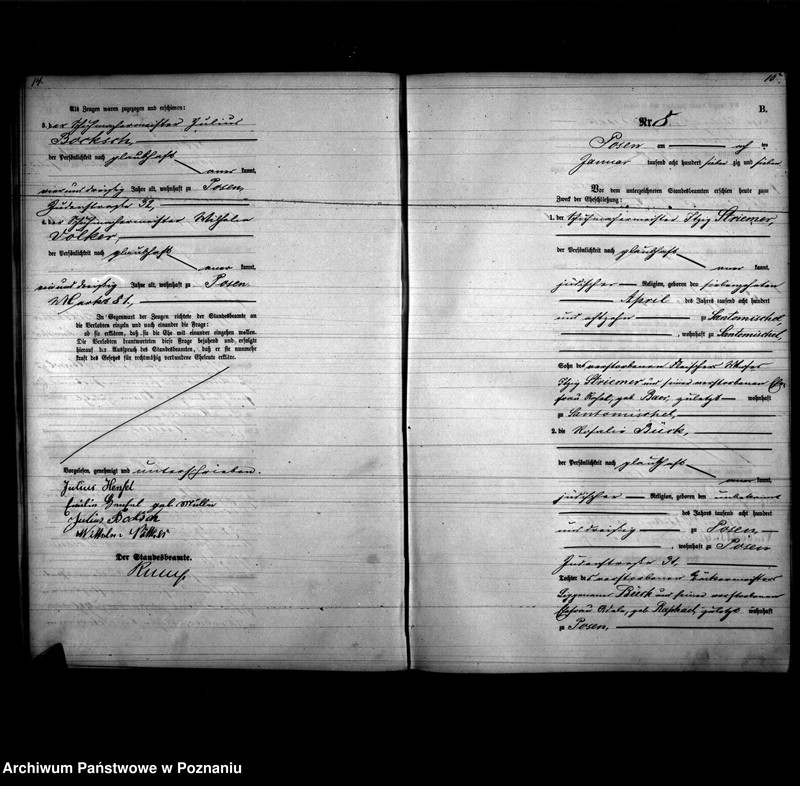 14.
Als Zeugen waren zugezogen und erschienen:
3. der Schuhmachermeister Julius
Böcksch,
der Persönlichkeit nach glaubhaft
aner kannt,
vier und dreißig Jahre alt, wohnhaft zu Posen,
Judenstraße 31,
4. der Schuhmachermeister Wilhelm
Völker,
der Persönlichkeit nach glaubhaft
aner kannt,
und dreißig Jahre alt, wohnhaft zu Posen
Markt 81,
In Gegenwart der Zeugen richtete der Standesbeamte an
die Verlobten einzeln und nach einander die Frage:
ob sie erklären, daß sie die Ehe mit einander eingehen wollen.
Die Verlobten beantworteten diese Frage bejahend und erfolgte
hierauf der Ausspruch des Standesbeamten, daß er sie nunmehr
kraft des Gesetzes für rechtmäßig verbundene Eheleute erkläre.
Vorgelesen, genehmigt und unterschrieben.
Julius Hensel
Emilie Hensel geb Müller
Julius Böcksch
Wilhelm Völker
Der Standesbeamte.
15.
B.
Nr. 8
Posen am ten
Januar tausend acht hundert sieben zig und sieben
Vor dem unterzeichneten Standesbeamten erschienen heute zum
Zweck der Eheschließung:
1. der Schuhmachermeister Itzig Striemer,
der Persönlichkeit nach glaubhaft
aner kannt,
jüdischer Religion, geboren den siebenzehnten
April des Jahres tausend acht hundert
und achtzehn zu Santomischel,
, wohnhaft zu Santomischel,
Sohn des verstorbenen Fleischer Moses
Itzig Striemer und seiner verstorbenen Ehe
frau geb. Baer, zuletzt wohnhaft
zu Santomischel,
2. die Rosalie Bück,
der Persönlichkeit nach glaubhaft
aner kannt,
jüdischer Religion, geboren den unbekannt
des Jahres tausend acht hundert
und dreißig zu Posen,
, wohnhaft zu Posen
Judenstraße 31,
Tochter des verstorbenen
Bück und seiner verstorbenen
Ehefrau geb. Raphael, zuletzt wohnhaft
zu Posen,
Archiwum Państwowe w Poznaniu